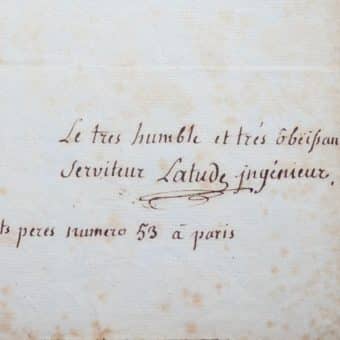 Le tres humble et trés õbeissan
serviteur Latude jngénieur,
ts peres numero 53 â paris